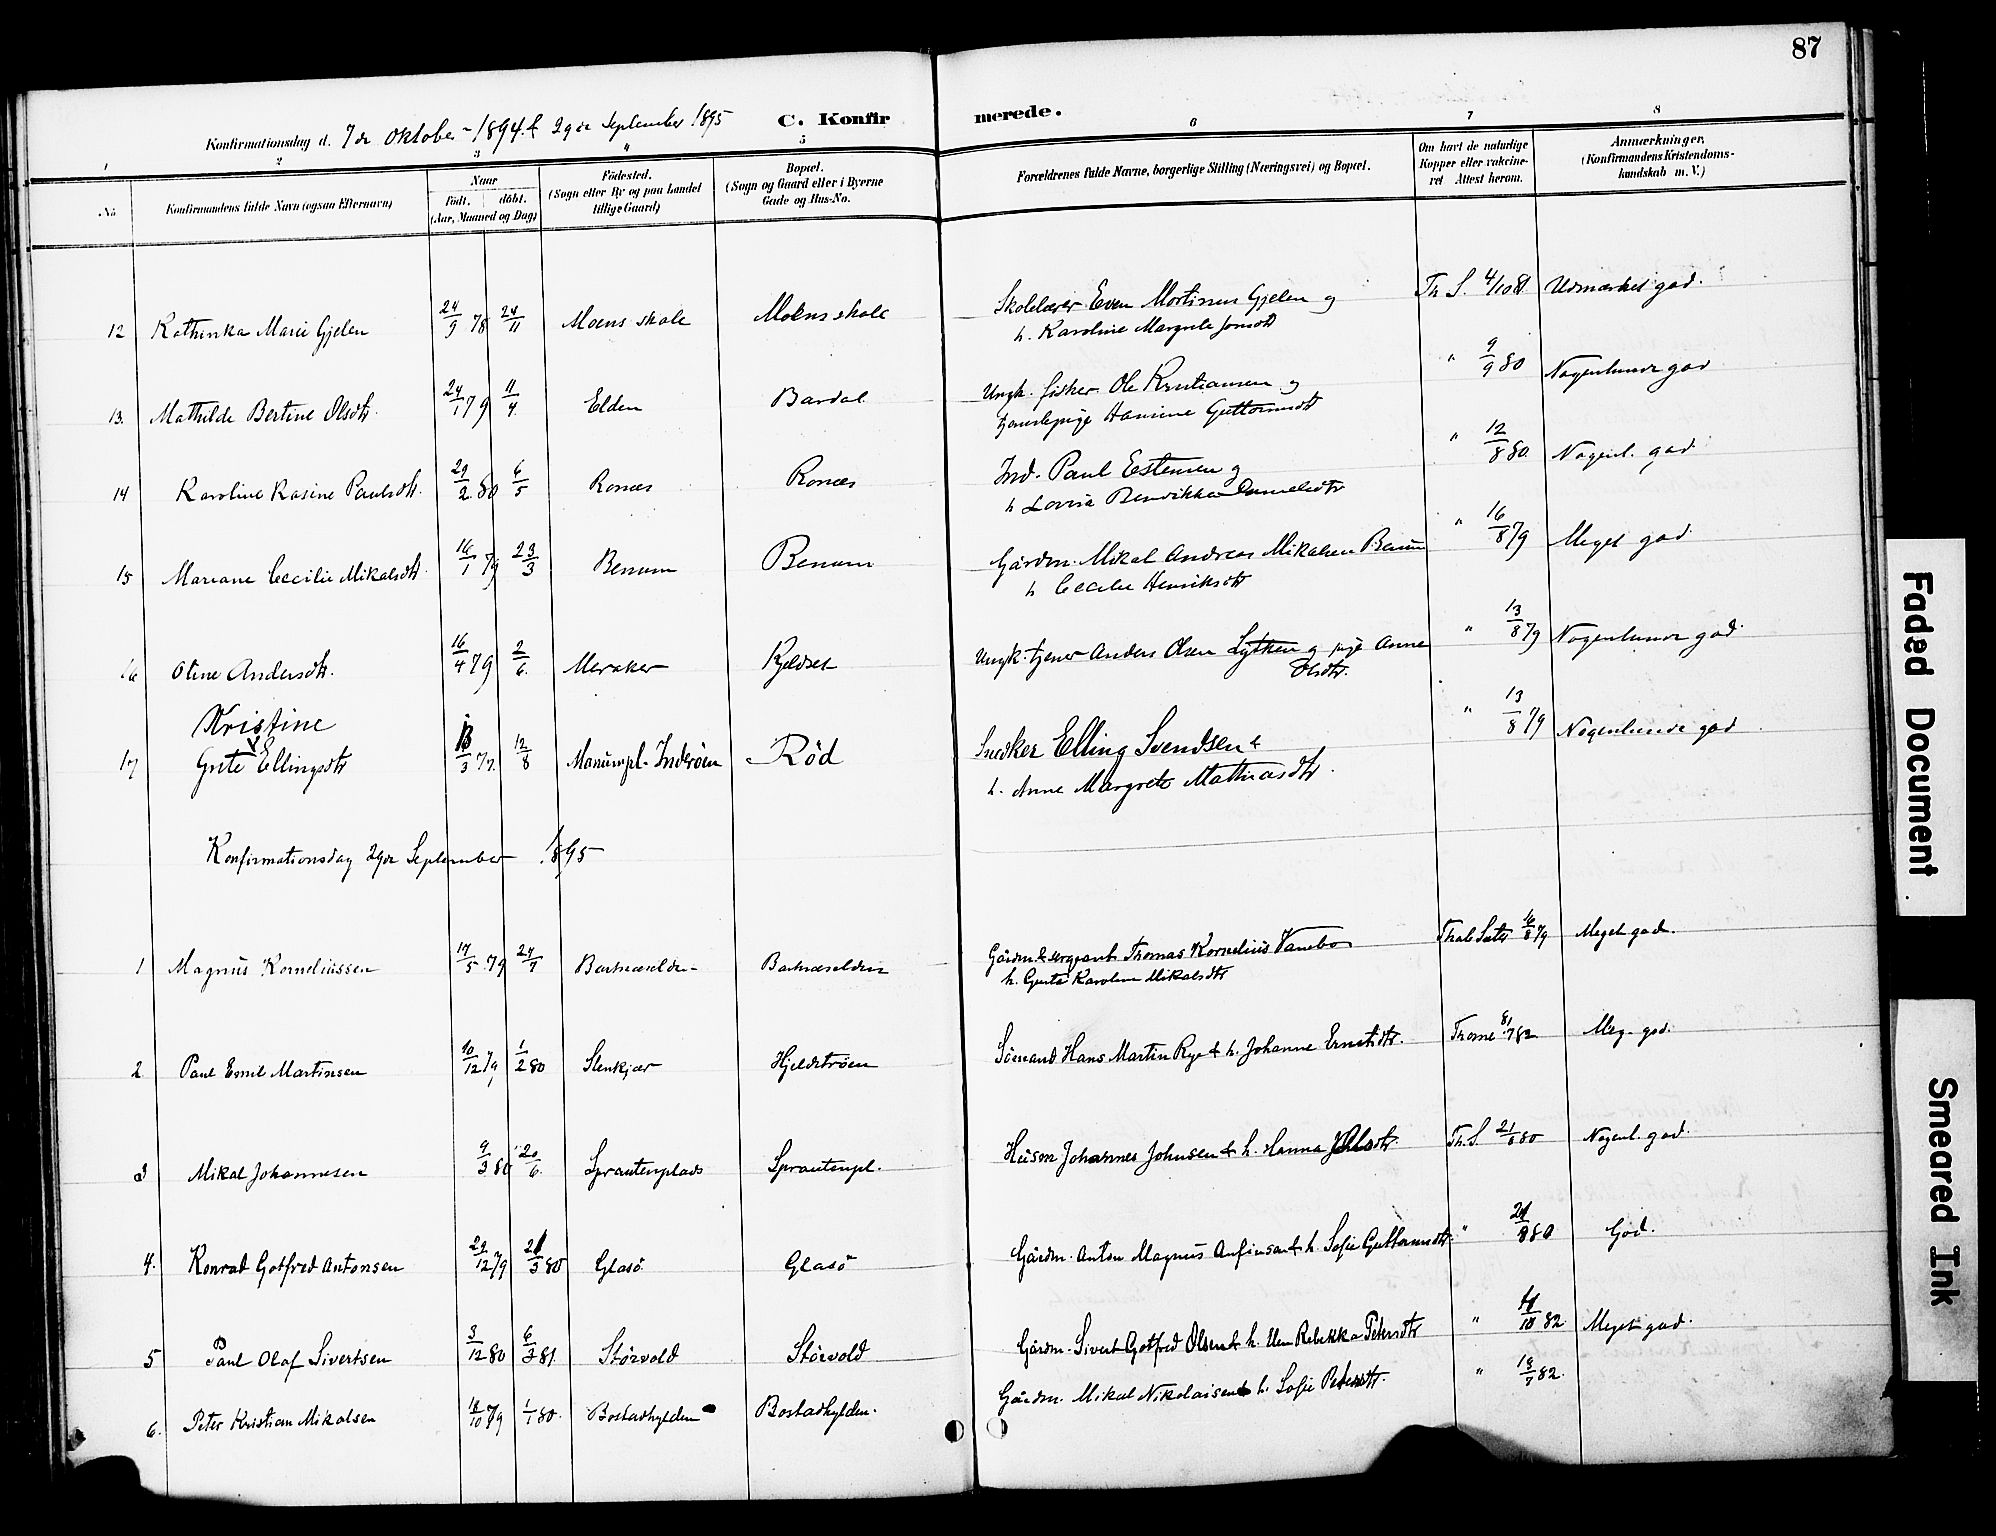 87
Konfirmationsdag d. 7de Oktober 1894 & 29de September 1895 C. Konfirmerede.
1 2 3 4 5 6 7 8
No. Konfirmandens fulde Navn (ogsaa Efternavn) Naar Født. døbt. (Aar, Maaned og Dag) Fødested. (Sogn eller By og paa Landet tillige Gaard) Bopæl. (Sogn og Gaard eller i Byerne Gade og Hus-No. Forældrenes fulde Navne, borgerlige Stilling (Næringsvei) og Bopæl. Om havt de naturlige Kopper eller vaccineret Attest herom. Anmærkninger, (Konfirmandens Kristendomskundskab m. V.)
12 Kathinka Marie Gjelen 24/9 78 24/11 Moens skole Moens skole Skolelærer Even Mortinus Gjelen og Th. S. 4/10 81 Udmærket god.
h. Karoline Margrete Jonsdtr
13. Mathilde Bertine Olsdtr. 24/1 79 11/4 Elden Bardal Ungk. fisker Ole Kristiansen og " 9/9 80 Nogenlunde god
tjenestepige Hansine Guttormsdtr
14 Karoline Rasine Paulsdtr. 29/2 80 6/5 Ronæs Ronæs Ind. Paul Estensen og " 12/8 80. Nogenl. god
h Lovisa Benrikke Danielsdtr
15 Mariane Cecilie Mikalsdtr. 16/1 79 23/3 Benum Benum Gårdm. Mikal Andreas Mikalsen Benum " 16/8 79 Meget god
h Cecilie Henriksdtr
16 Oline Andersdtr. 16/4 79 2/6. Meraker Kjeldset Ungk. tjener Anders Olsen Lytken og pige Anne " 13/8 79 Nogenlunde god.
Olsdtr.
Kristine
17 Grete Ellingsdtr 13/3 77. 12/8 Manumpl. Inderøen Rød Snedker Elling Svendsen & " 13/8 79 Nogenlunde god
h. Anne Margrete Mathiasdtr.
Konfirmationsdag 29de September 1895
1 Magnus Korneliussen 17/5 79 27/7 Bartnæselden Bartnæselden Gårdm & sergeant Thomas Kornelius Vanebo 16/8 79 Meget god.
h. Gurita Karoline Mikalsdtr
2 Paul Emil Martinsen 10/12 79 1/2 80 Stenkjær Hjeldstrøen Sømand Hans Martin Rye & h. Johanne Ernstdtr. 8/7 82 Meg. god.
3 Mikal Johannesen 9/3 80 20/6. Sprautenplads Sprautenpl. Husm Johannes Johnsen & h. Hanna Th. S 21/8 80 Nogenl. god.
4. Konrad Gotfred Antonsen 29/12 79 21/3 80 Glasø Glasø Gårdm. Anton Magnus Anfinsen & h. Sofie Guttormsdtr " 21/8 80 God.
5 Paul Olaf Sivertsen 3/12 80 6/3 81. Størvold Størvold Gårdm. Sivert Gotfred Olsen & h. Elen Rebekka Petersdtr " 82. Meget god.
6. Peter Kristian Mikalsen 18/10 79 1/1 80. Bostadhylden Bostadhylden. Gårdm. Mikal Nikolaisen & h. Sofie Petersdtr. " 18/7 82.
Faded Document
Smeared Ink